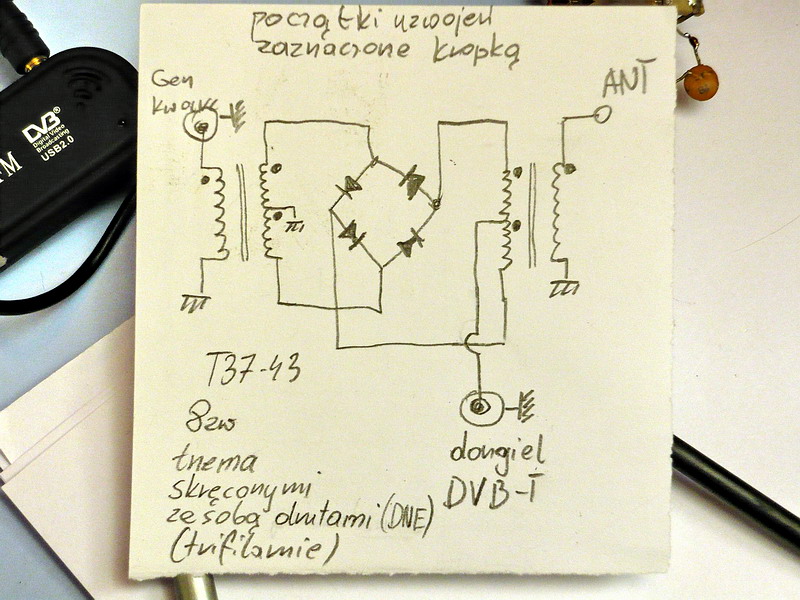 początki uzwojeń
zaznaczone kropką
Gen
kwarc
ANT
DVB®
Digital Video
Broadcasting
USB2.0
FM
T37-43
8zw
trzema
skręconymi
ze sobą drutami (DNE)
(trifilarnie)
dongiel
DVB-T